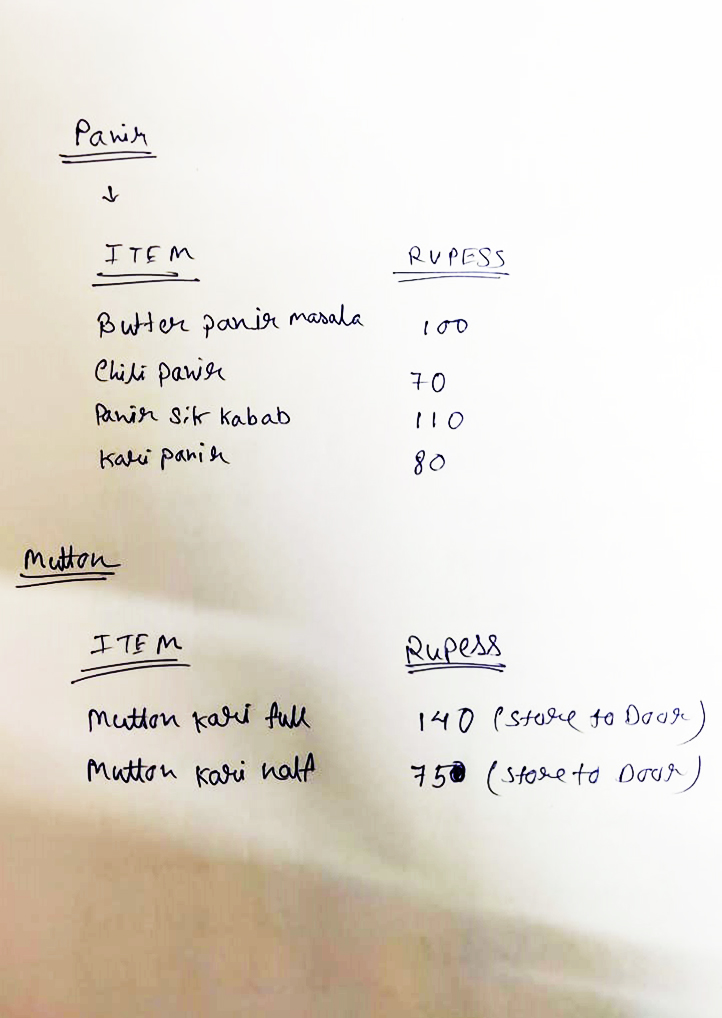 Panir
↓
ITEM RUPESS
Butter panir masala 100
Chili panir 70
Panir Sik kabab 110
Kari panir 80
Mutton
ITEM Rupess
Mutton kari full 140 (Store to Door)
Mutton kari half 75 (Store to Door)